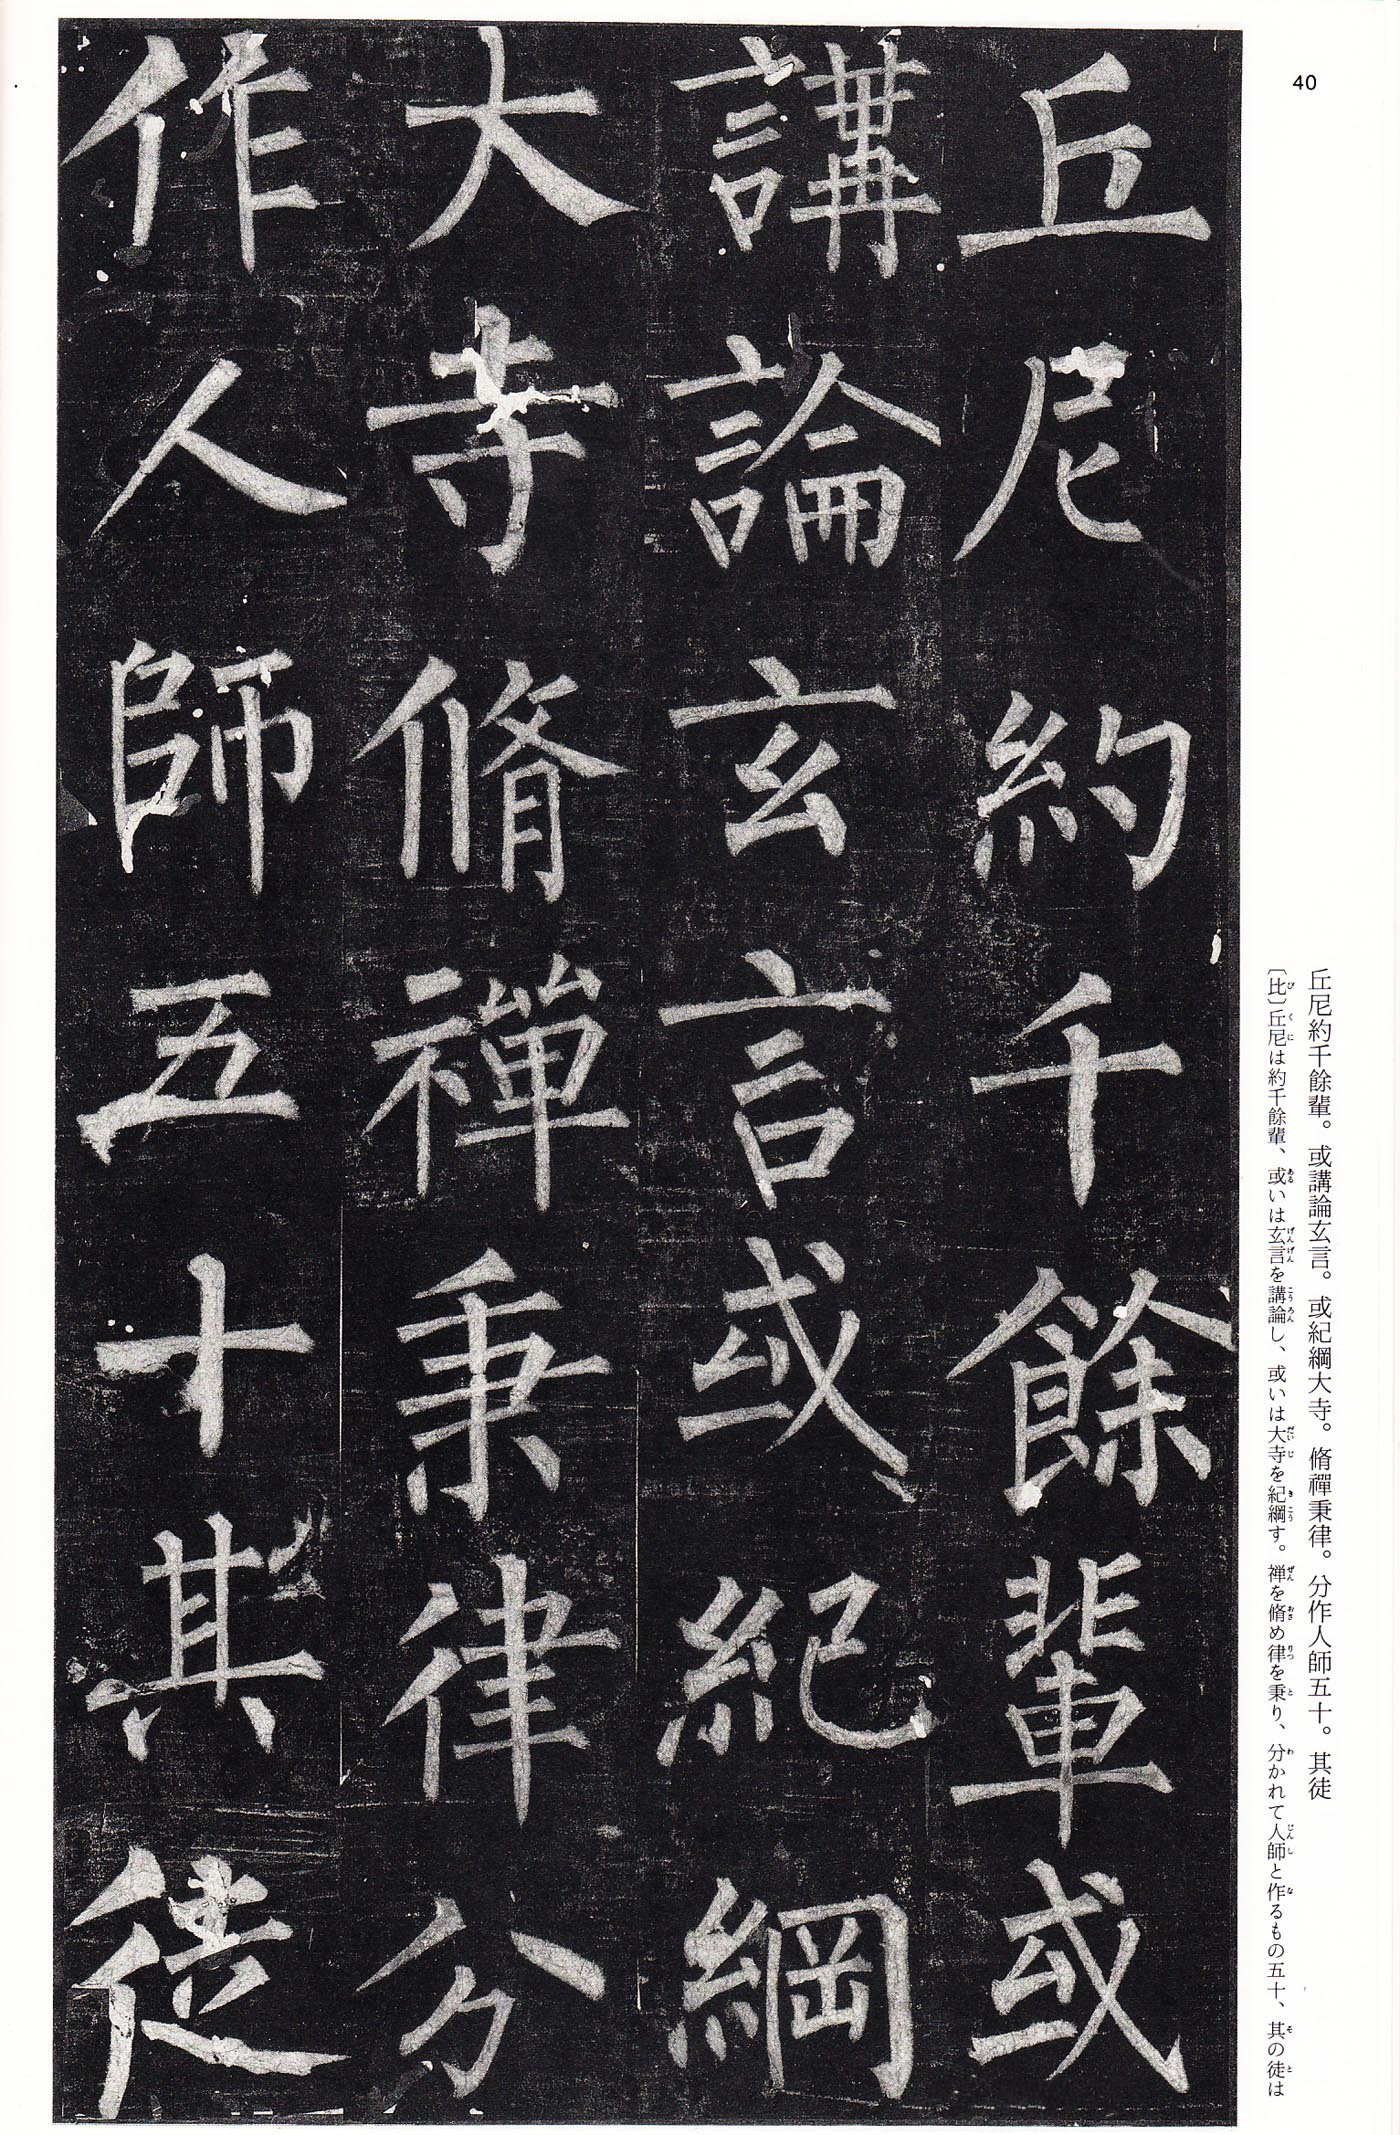 40
丘尼約千餘輩。或講論玄言。或紀綱大寺。脩禪秉律。分作人師五十。其徒
〔比〕丘尼は約千餘輩、或いは玄言を講論し、或いは大寺を紀綱す。禅を脩め律を秉り、分かれて人師と作るもの五十、其の徒は
丘尼約千餘輩或
講論玄言或紀綱
大寺脩禪秉律分
作人師五十其徒